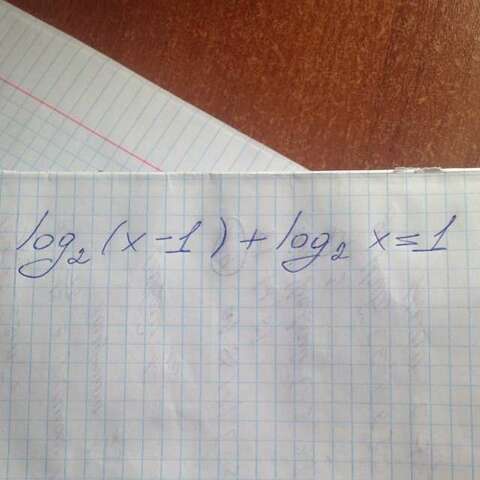 log₂(x-1)+log₂ x≤1